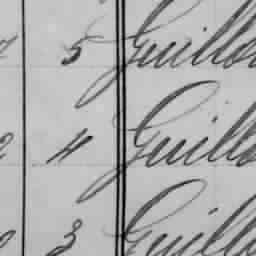 5 Guillo
4 Guillo
3 Guillo